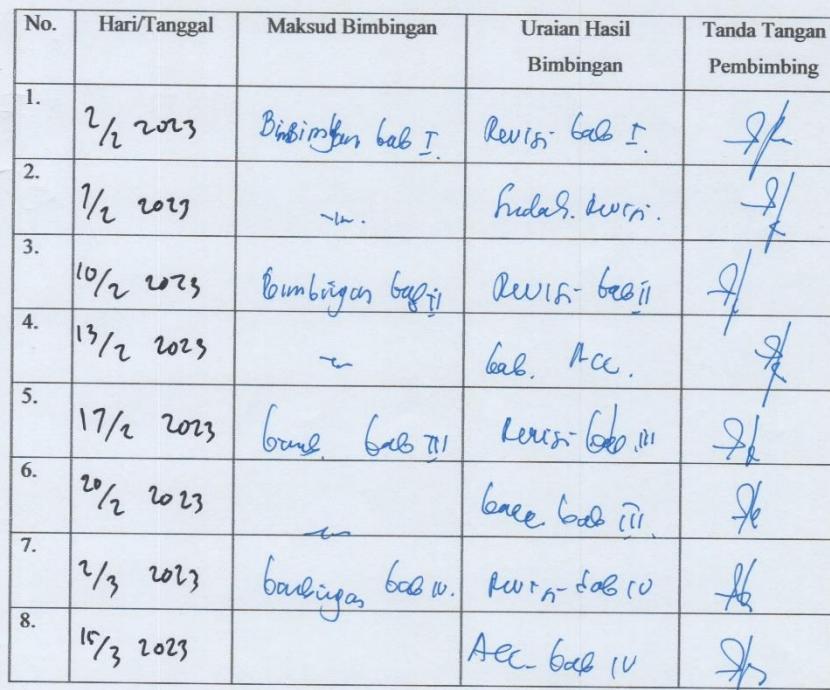 No. Hari/Tanggal Maksud Bimbingan Uraian Hasil Bimbingan Tanda Tangan Pembimbing
1. 2/2 2023 Bimbingan bab I Revisi bab I.
2. 7/2 2023 Sudah. Revisi.
3. 10/2 2023 Bimbingan bab II Revisi bab II
4. 13/2 2023 bab. Acc.
5. 17/2 2023 bimb. bab III Revisi bab III
6. 20/2 2023 bab III.
7. 2/3 2023 bimbingan bab IV. Revisi bab IV
8. 15/3 2023 Acc bab IV